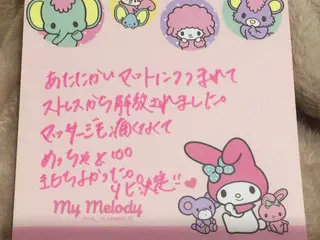 あたたかいマットにつつまれて
ストレスから解放されました。
マッサージも痛くなくて
めっちゃ
気持ちよかったです。
リピ決定!!
My Melody